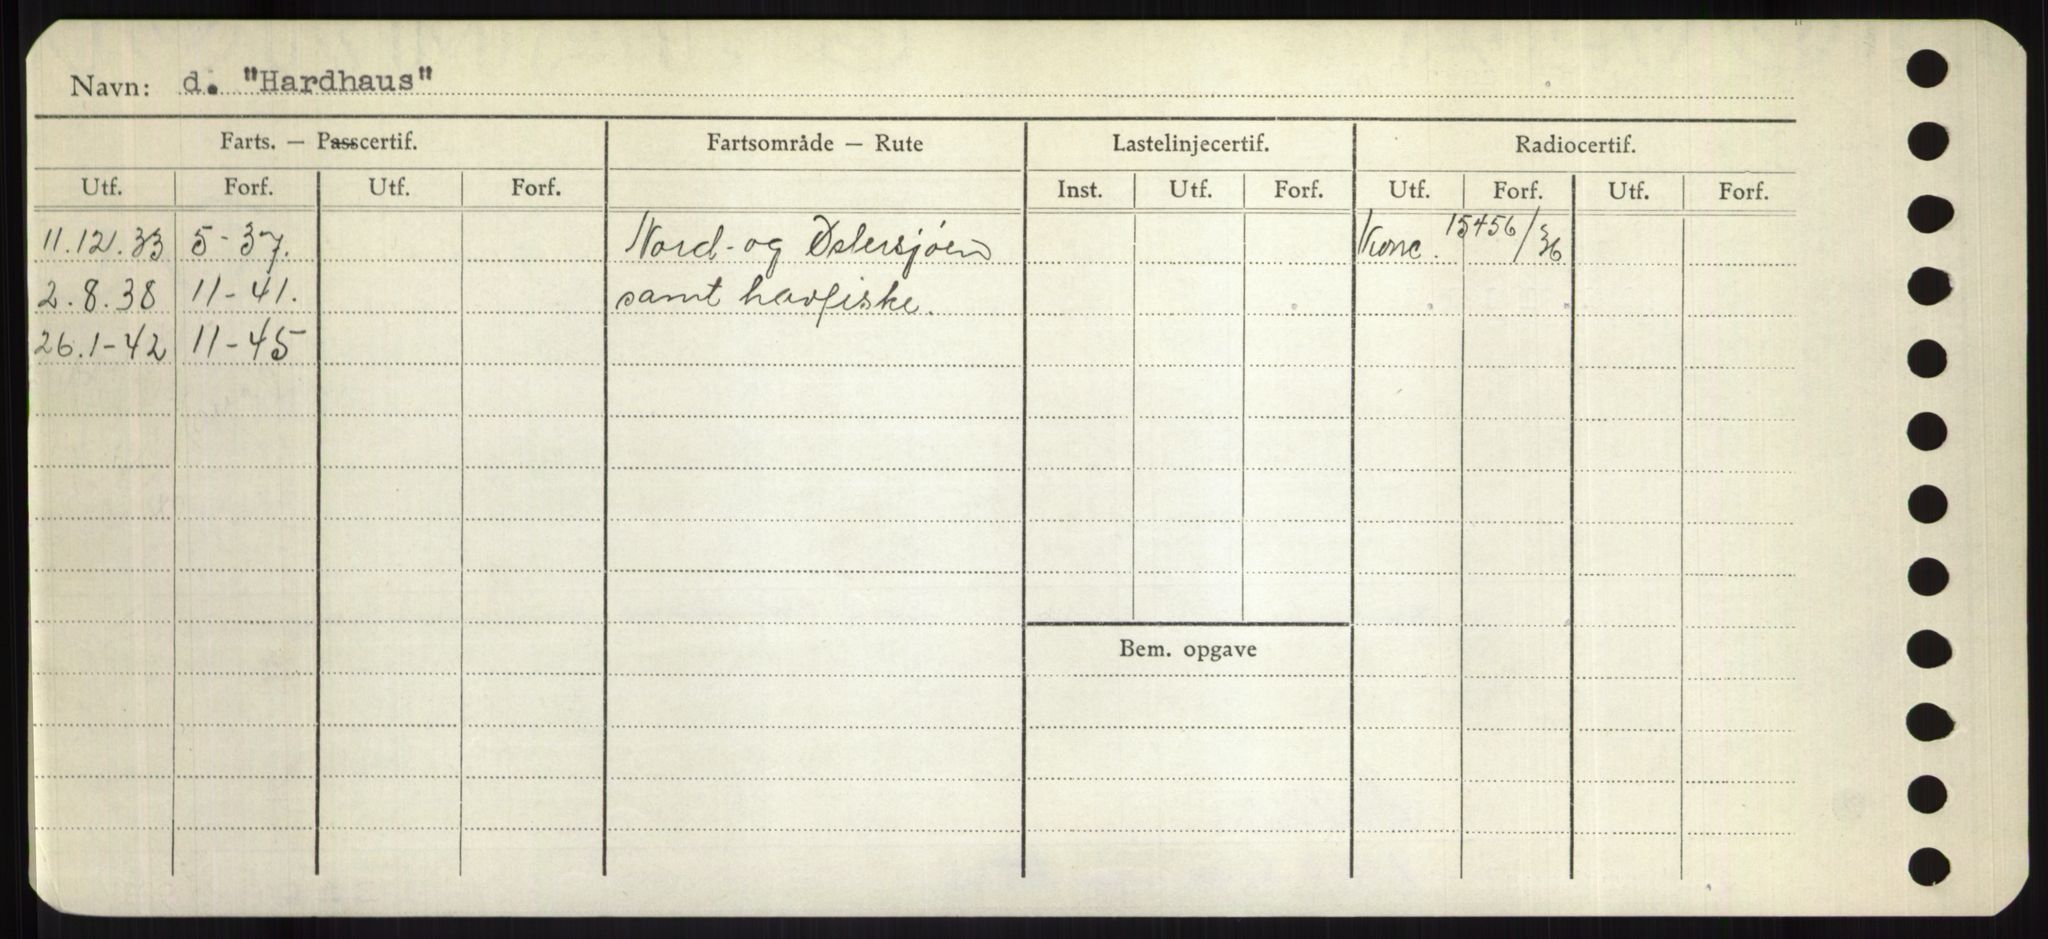 Navn: d. "Hardhaus"
Farts. — Passcertif. Fartsområde — Rute Lastelinjecertif. Radiocertif.
Utf. Forf. Utf. Forf. Inst. Utf. Forf. Utf. Forf. Utf. Forf.
11.12.33 5-37. Nord- og Østersjøen 15456/36
2.8.38 11-41. samt havfiske.
26.1-42 11-45
Bem. opgave